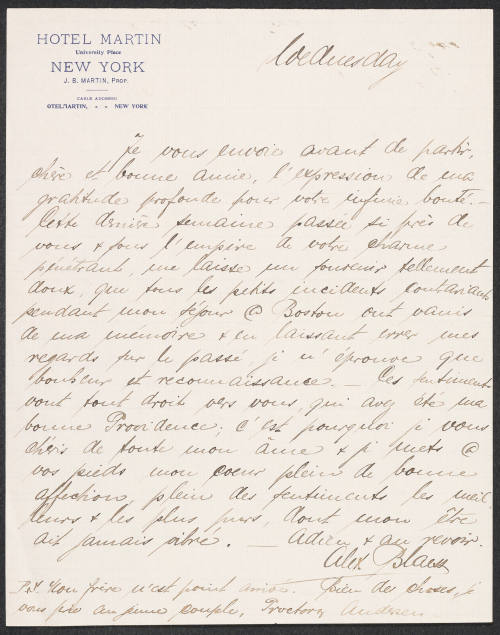 HOTEL MARTIN
University Place
NEW YORK
J. B. MARTIN, Prop.
CABLE ADDRESS
OTELMARTIN, - - NEW YORK
Wednesday
Je vous envoie avant de partir,
chère et bonne amie, l'expression de ma
gratitude profonde pour votre infinie bonté. —
Cette dernière semaine passée si près de
vous & sous l'empire de votre charme
pénétrant, me laisse un souvenir tellement
doux, que tous les petits incidents contrariants
pendant mon séjour @ Boston ont vanis
de ma mémoire & en laissant errer mes
regards sur le passé, je n'éprouve que
bonheur et reconnaissance. — Ces sentiments
vont tout droit vers vous, qui avez été ma
bonne Providence; c'est pourquoi je vous
chéris de toute mon âme & je mets @
vos pieds mon coeur plein de bonne
affection, plein des sentiments les meil
leurs & les plus purs, dont mon être
ait jamais vibré. — Adieu & au revoir.
Alex Blaess
P.S. Mon frère n'est point arrivé. Bien des choses, je
vous prie au jeune couple, Proctors, Andersen